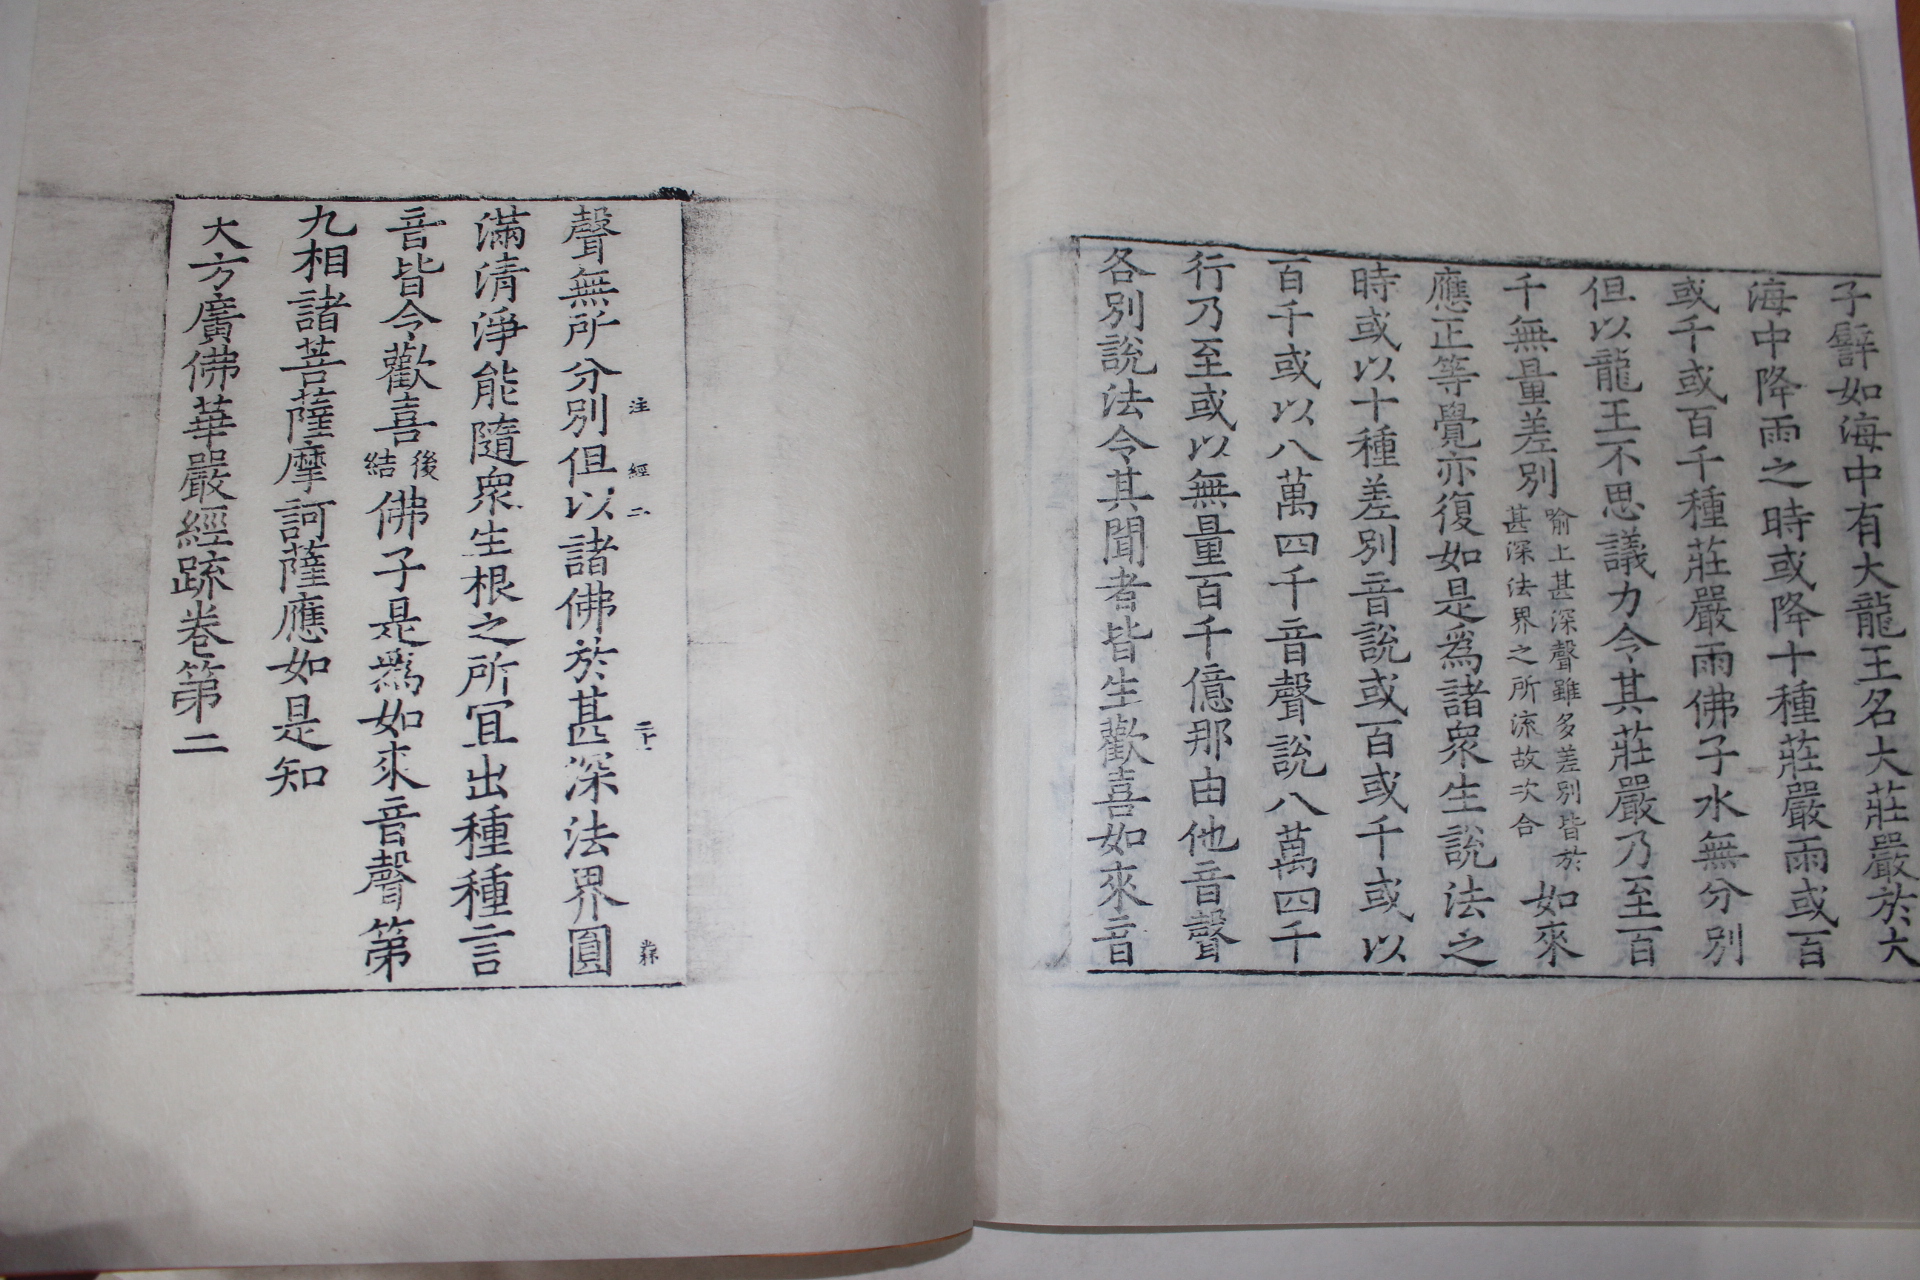 子譬如海中有大龍王名大莊嚴於大
海中降雨之時或降十種莊嚴雨或百
或千或百千種莊嚴雨佛子水無分別
但以龍王不思議力令其莊嚴乃至百
千無量差別喻上甚深聲雖多差別皆於甚深法界之所流故次合如來
應正等覺亦復如是為諸衆生說法之
時或以十種差別音說或百或千或以
百千或以八萬四千音聲說八萬四千
行乃至或以無量百千億那由他音聲
各別說法令其聞者皆生歡喜如來音
注經二 二十一
聲無所分別但以諸佛於甚深法界圓
滿清淨能隨衆生根之所冝出種種言
音皆令歡喜後結佛子是為如來音聲第
九相諸菩薩摩訶薩應如是知
大方廣佛華嚴經䟽卷第二